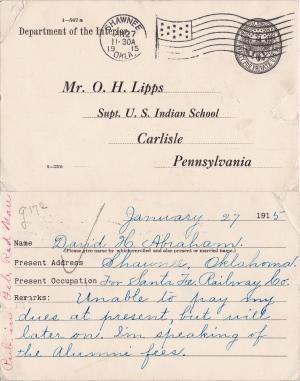 1-567a
Department of the Interior
SHAWNEE
JAN 27
11-30A
1915
OKLA.
Mr. O. H. Lipps
Supt. U. S. Indian School
Carlisle
Pennsylvania
January 27 1915
Name David H. Abraham.
(Please give name by which enrolled and also present or married name.)
Present Address Shawnee, Oklahoma
Present Occupation For Santa Fe. Railway Co.
Remarks: Unable to pay my
dues at present but will
later on. I'm speaking of
the Alumni fees.
Red Man